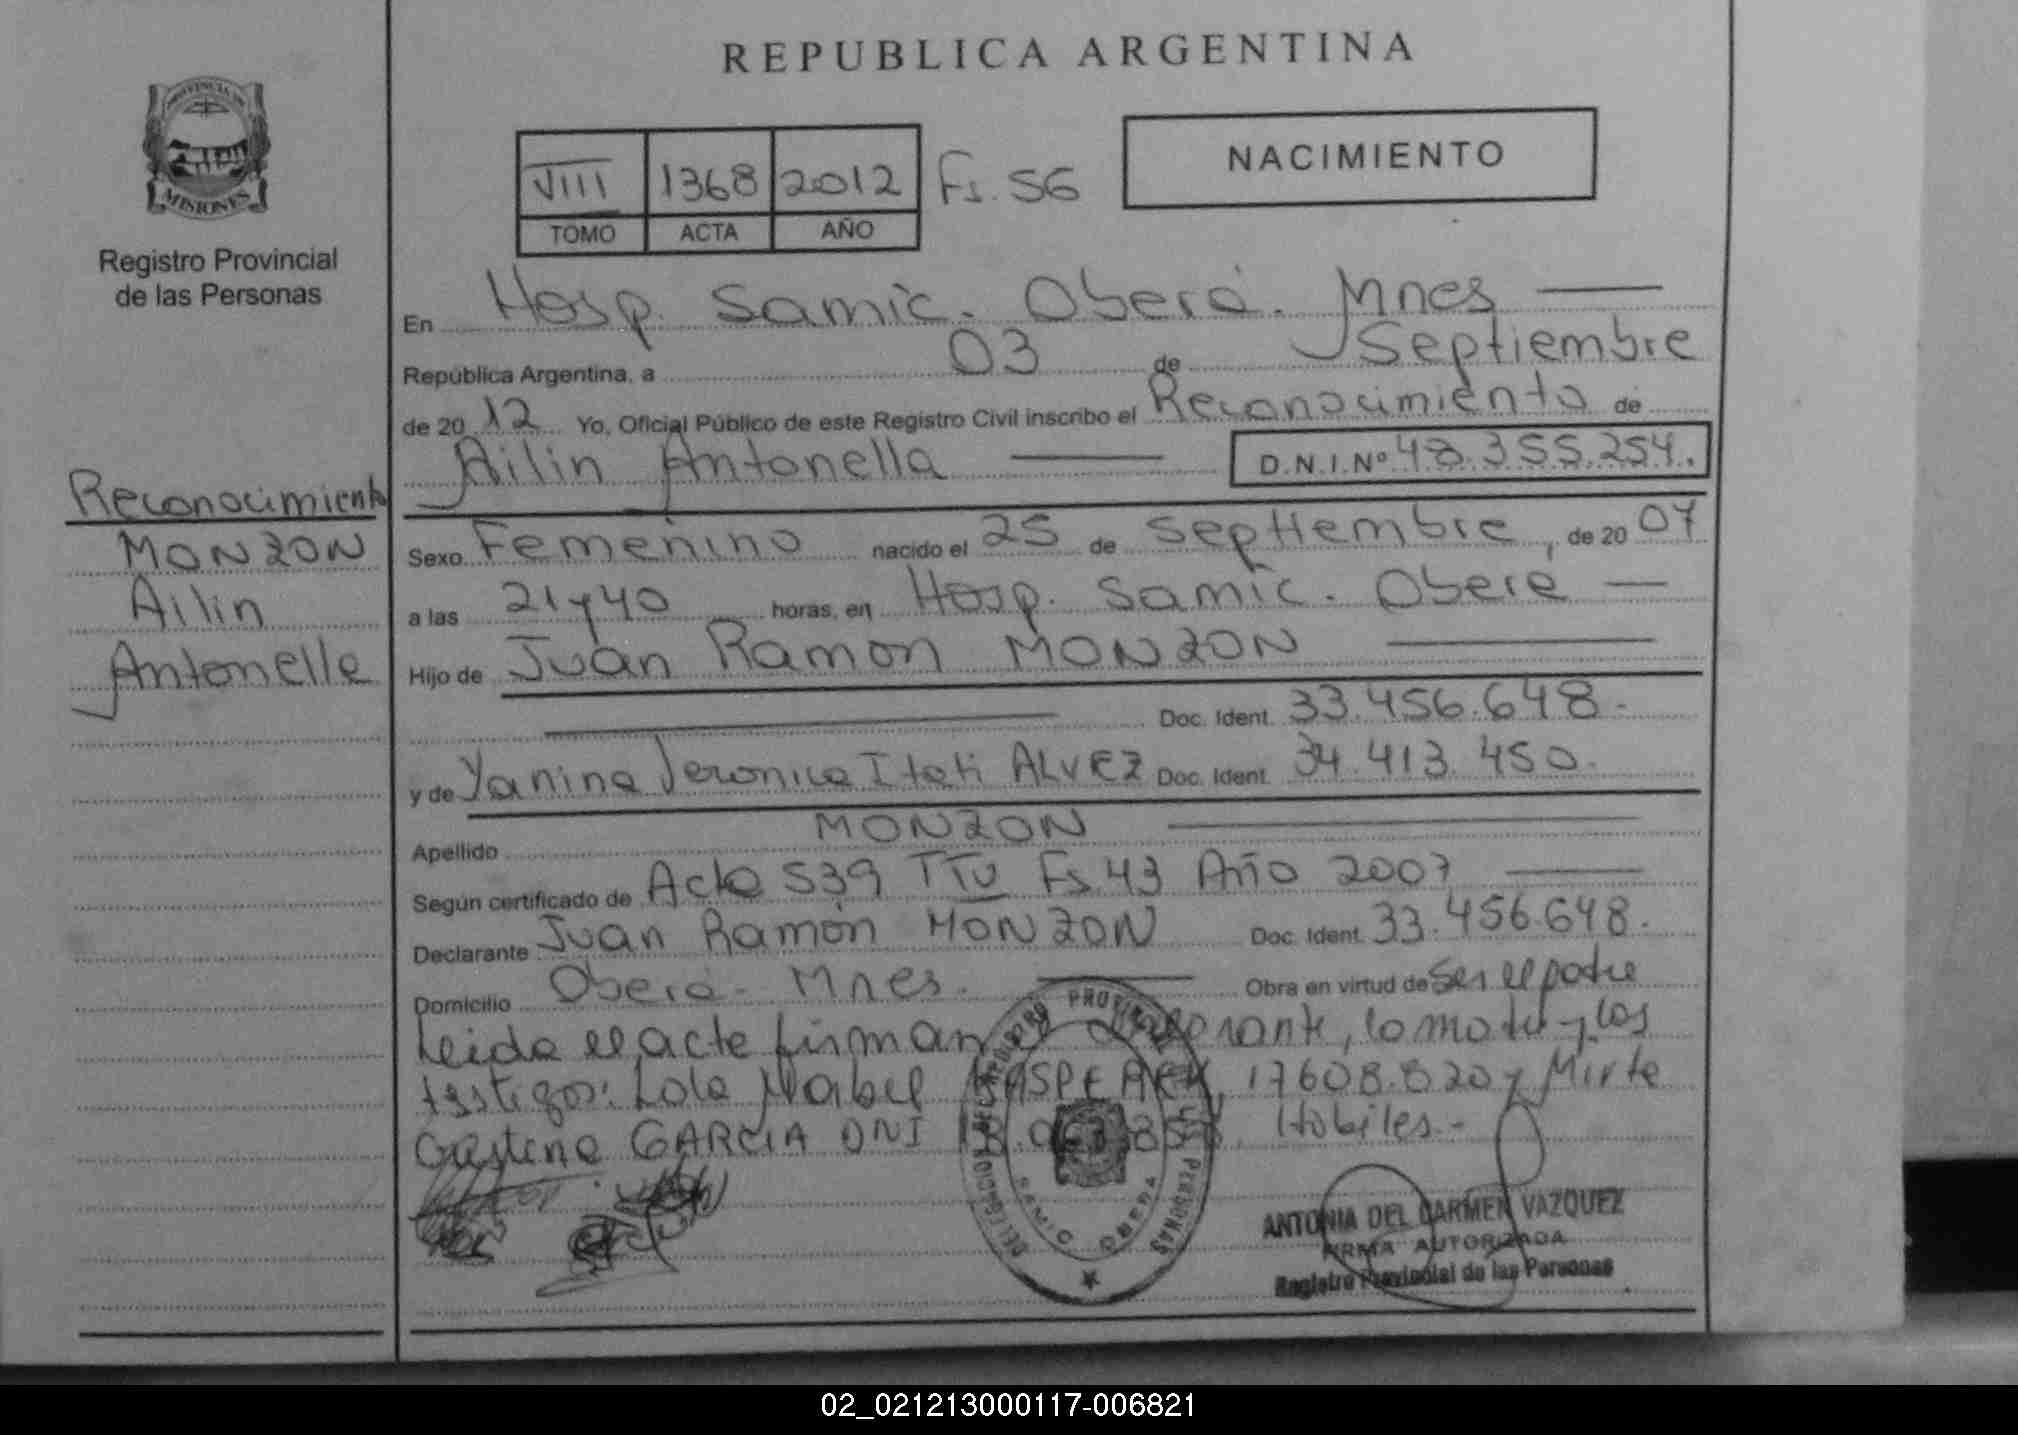 REPUBLICA ARGENTINA
PROVINCIA DE
MISIONES
Registro Provincial
de las Personas
VIII 1368 2012 Fs. 56
TOMO ACTA AÑO
NACIMIENTO
En Hosp. Samic. Oberá. Mnes
República Argentina, a 03 de Septiembre
de 2012 Yo, Oficial Público de este Registro Civil inscribo el Reconocimiento de
Ailin Antonella D.N.I.Nº 48.355.254.
Reconocimiento
MONZON
Ailin
Antonella
Sexo Femenino nacido el 25 de Septiembre, de 2007
a las 21y40 horas, en Hosp. Samic. Oberá
Hijo de Juan Ramon MONZON
Doc. Ident. 33.456.648.
y de Yanina Veronica Itati ALVEZ Doc. Ident. 34.413.450.
Apellido MONZON
Según certificado de Acta 539 Fs 43 Año 2007
Declarante Juan Ramón MONZON Doc. Ident. 33.456.648.
Domicilio Oberá - Mnes. Obra en virtud de ser el padre
Leida el acta firman declarante, la madre y los
testigos: Lola Mabel 17608.820 y Mirta
Cristina GARCIA DNI Habiles.-
DELEGACION DEL REGISTRO PROVINCIAL PERSONAS
SAMIC OBERA
ANTONIA DEL CARMEN VAZQUEZ
FIRMA AUTORIZADA
Registro Provincial de las Personas
02_021213000117-006821